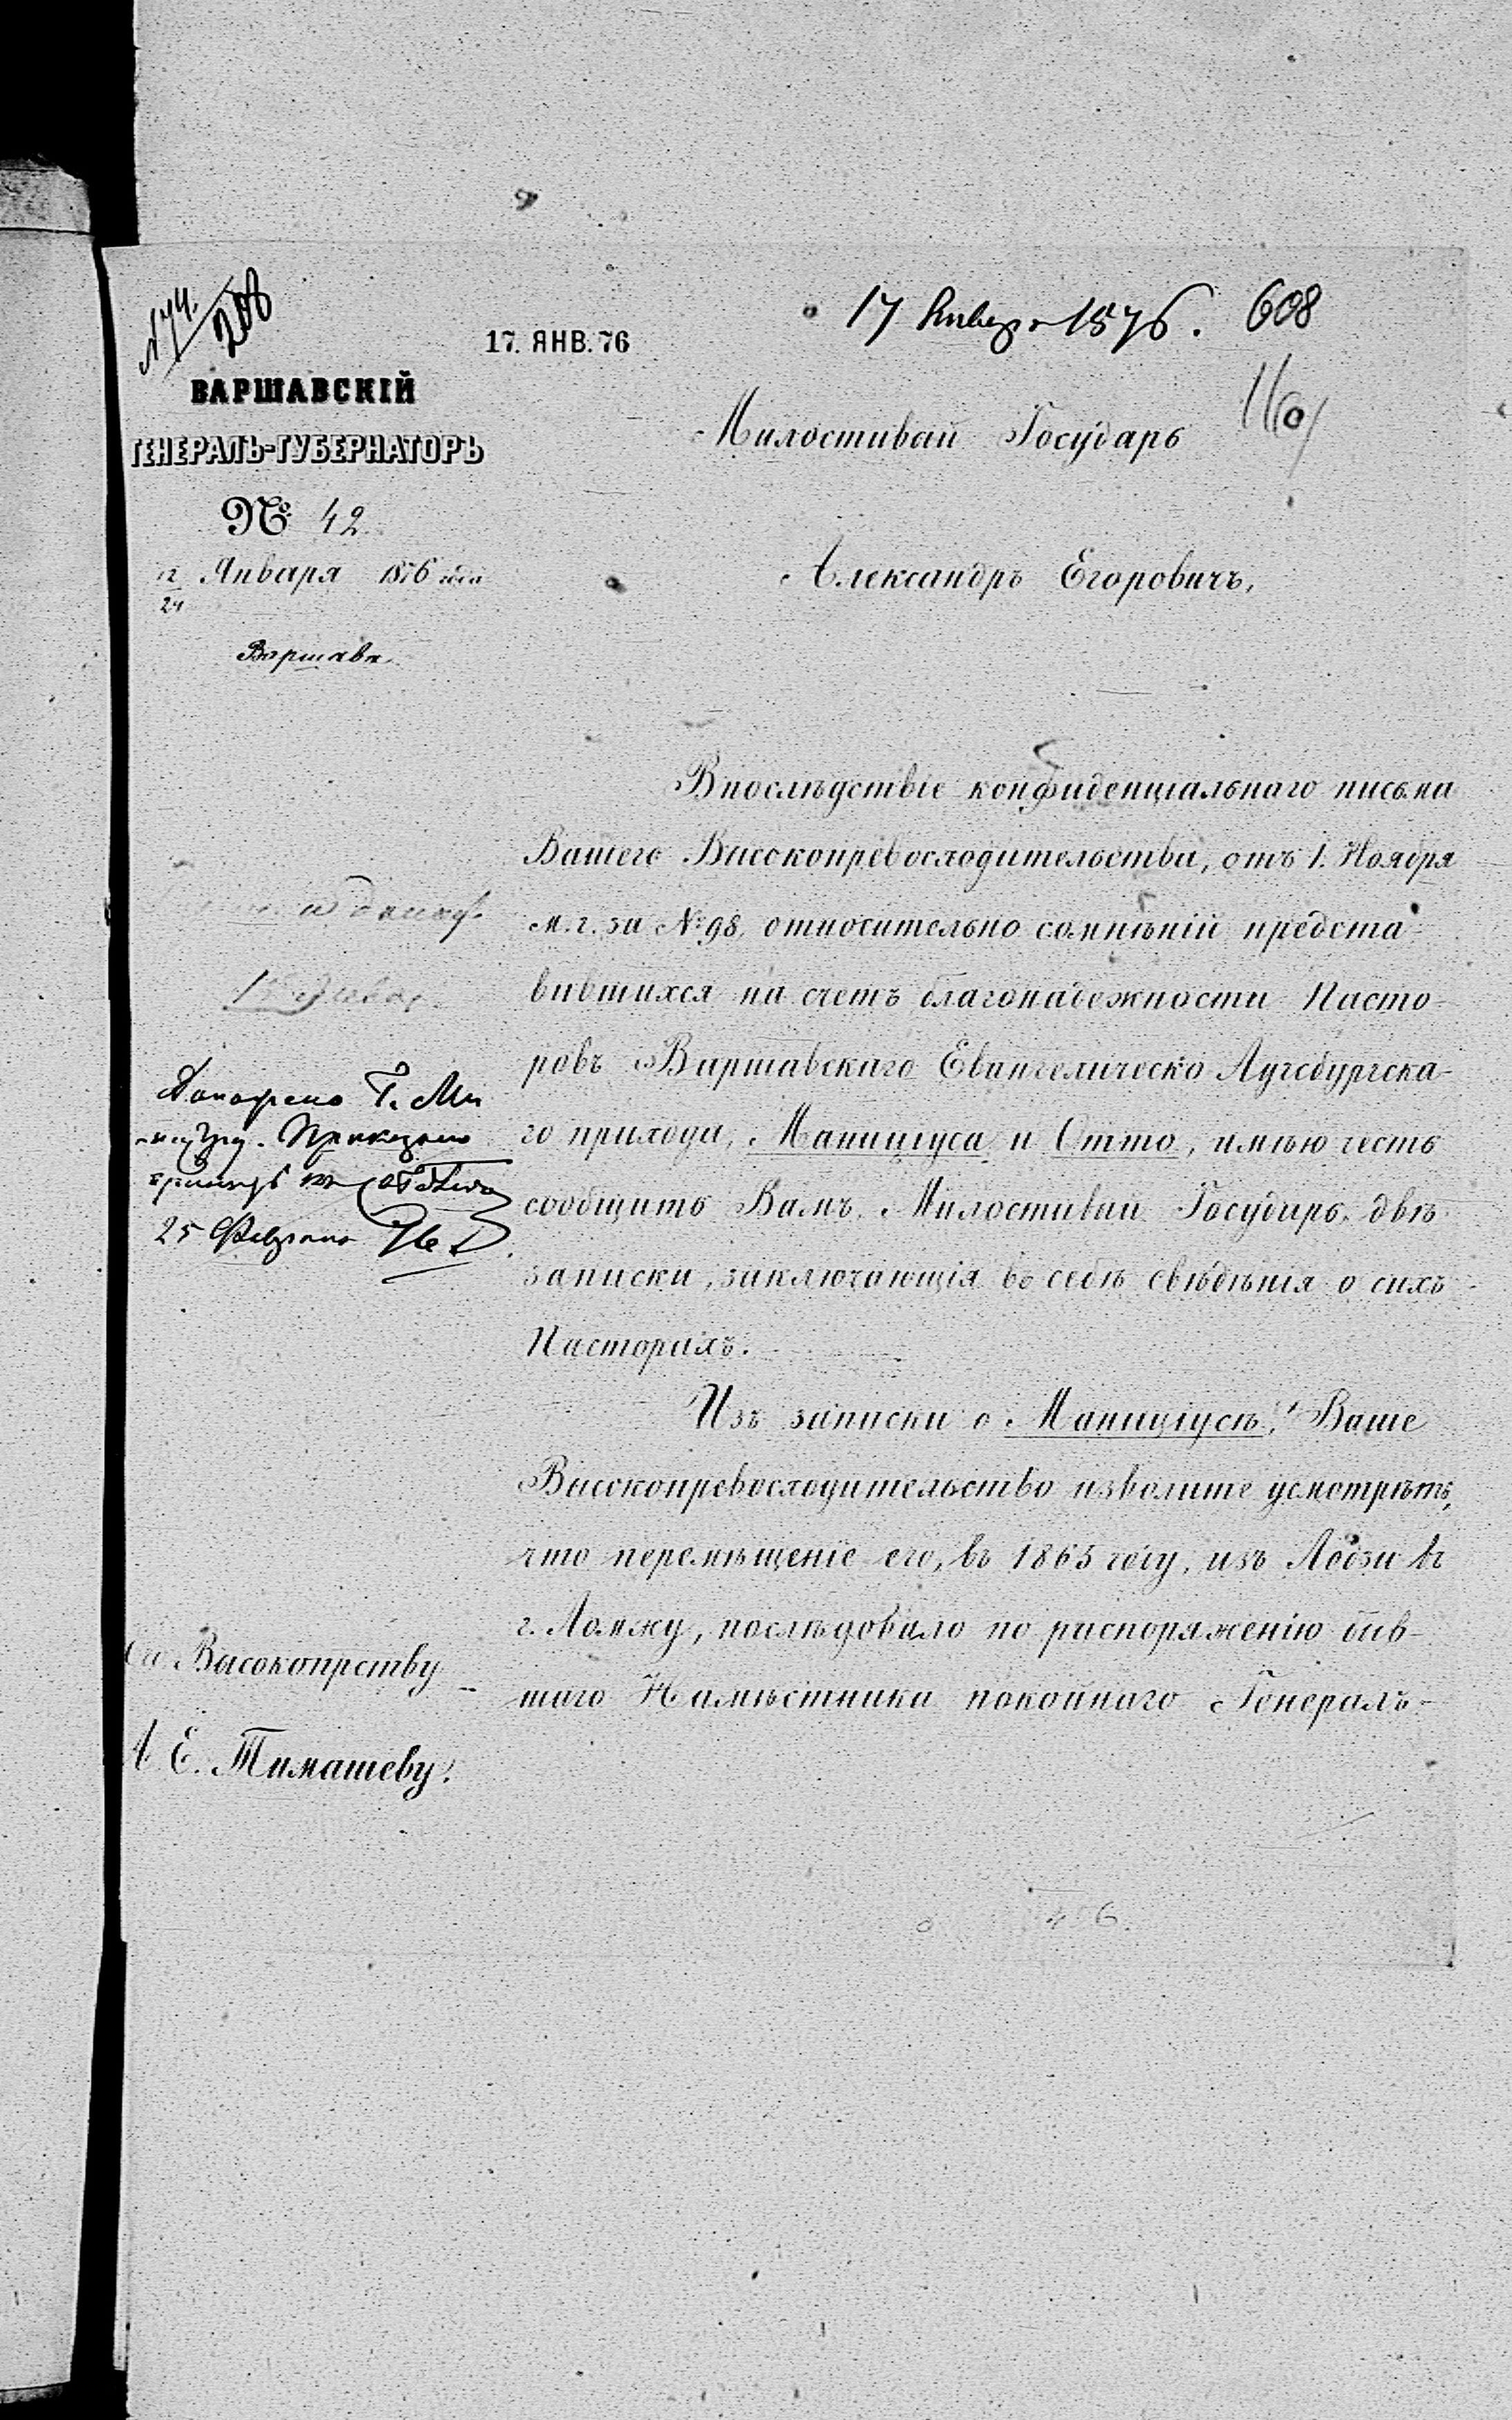 № 74.
208
17. ЯНВ. 76
17 Января 1876. 608
ВАРШАВСКІЙ
ГЕНЕРАЛЪ-ГУБЕРНАТОРЪ
№ 42
12/24 Января 1876 года
Варшава.
Милостивый Государь
Александръ Егоровичъ,
Впослѣдствіе конфиденціальнаго письма
Вашего Высокопревосходительства, отъ 1. Ноября
м. г. за № 98, относительно сомнѣній предста-
вившихся на счетъ благонадежности Пасто-
ровъ Варшавскаго Евангелическо Аугсбургска-
го прихода, Маниціуса и Отто, имѣю честь
сообщить Вамъ, Милостивый Государь, двѣ
записки, заключающія въ себѣ свѣдѣнія о сихъ
Пасторахъ.
Изъ записки о Маниціусѣ, Ваше
Высокопревосходительство изволите усмотрѣть,
что перемѣщеніе его, въ 1865 году, изъ Лодзи въ
г. Ломжу, послѣдовало по распоряженію быв-
шаго Намѣстника покойнаго Генералъ-
Доложено Г. Ми
Приказано
25 Февраля
Его Высокопрству
А. Е. Тимашеву.